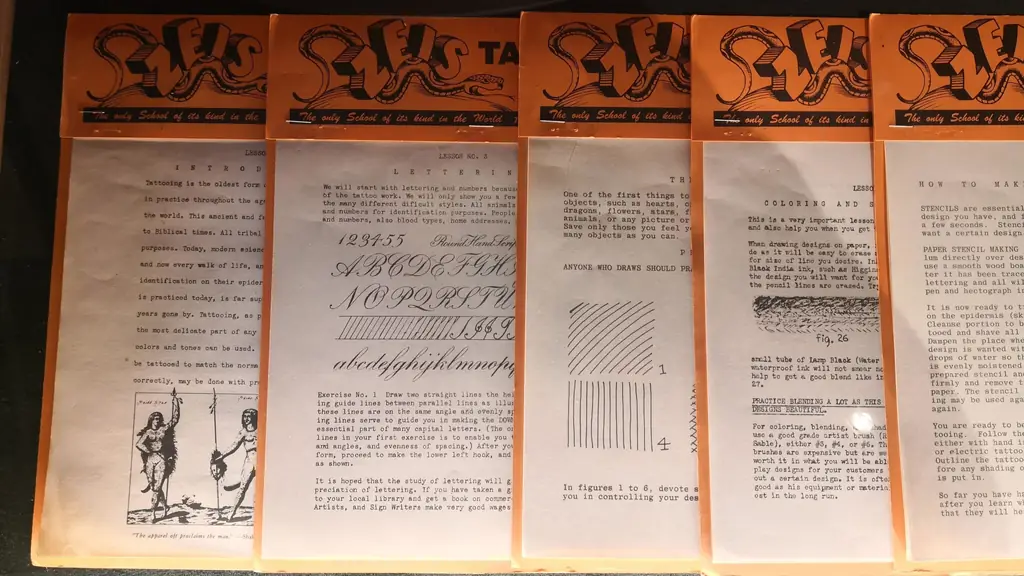 The only School of its kind in the
LESSO
I N T R O D
Tattooing is the oldest form
in practice throughout the ag
the world. This ancient and f
to Biblical times. All tribal
purposes. Today, modern scien
and now every walk of life, an
identification on their epider
is practiced today, is far sup
years gone by. Tattooing, as p
the most delicate part of any
colors and tones can be used.
be tattooed to match the norma
correctly, may be done with pr
"The apparel oft proclaims the man."
ZEIS TA
The only School of its kind in the World
LESSON NO.
L E T T E R I N
We will start with lettering and numbers becaus
of the tattoo work. We will only show you a few
the many different difficult styles. All animals
and numbers for identification purposes. People
and numbers, also blood types, home addresses,
1234-55 Round Hand Scrip
ABCDEFGHS
NOPQRSTU
abcdefghijklmnopq
Exercise No. 1 Draw two straight lines the he
ing guide lines between parallel lines as illus
these lines are on the same angle and evenly sp
ing lines serve to guide you in making the DOWN
essential part of many capital letters. (The o
lines in your first exercise is to enable you t
ard angles, and evenness of spacing.) After you
form, proceed to make the lower left hook, and
as shown.
It is hoped that the study of lettering will g
preciation of lettering. If you have taken a
to your local library and get a book on commer
Artists, and Sign Writers make very good wages
The only School of its kind in
T H
One of the first things to
objects, such as hearts, c
dragons, flowers, stars, f
animals, or any picture or
Save only those you feel y
many objects as you can.
P
ANYONE WHO DRAWS SHOULD PR
1
4
In figures 1 to 6, devote s
you in controlling your des
The only School of its kind in
LESSO
C O L O R I N G A N D S
This is a very important lesson
and also help you when you get
When drawing designs on paper,
do as it will be easy to erase
for size of line you desire. In
Black India ink, such as Higgin
the design you will want for you
the pencil lines are erased. Try
fig. 26
small tube of Lamp Black (Water
waterproof ink will not smear no
help to get a good blend like in
27.
PRACTICE BLENDING A LOT AS THIS
DESIGNS BEAUTIFUL.
For coloring, blending, shad
use a good grade artist brush (R
Sable), either #3, #4, or #6. Th
brushes are expensive but are we
worth it in what you will be abl
play designs for your customers
out a certain design. It is ofte
good as his equipment or materia
ost in the long run.
The only School of its k
H O W T O M A K
STENCILS are essential
design you have, and
a few seconds. Stenci
want a certain design.
PAPER STENCIL MAKING
lum directly over desi
use a smooth wood boa
ter it has been trace
lettering and all wil
pen and hectograph i
It is now ready to t
on the epidermis (sk
Cleanse portion to b
tooed and shave all
Dampen the place whe
design is wanted wit
drops of water so th
is evenly moistened
prepared stencil and
firmly and remove t
paper. The stencil
ing may be used again
again.
You are ready to be
tooing. Follow the
either with hand l
or electric tattoo
Outline the tattoo
fore any shading o
is put in.
So far you have h
after you learn w
that they will he